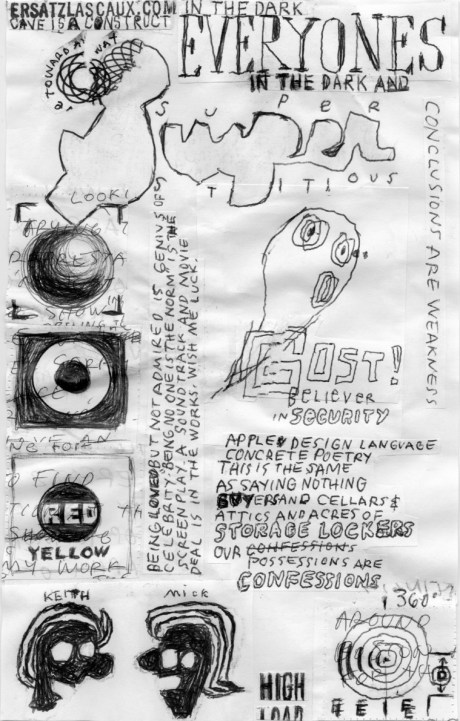 ERSATZLASCAUX.COM IN THE DARK
CAVE IS A CONSTRUCT
EVERYONES
IN THE DARK AND
TOWARD A WAY
SUPER
TITIOUS
CONCLUSIONS ARE WEAKNESS
LOOKI
SHOW
BEING LOVED BUT NOT ADMIRED IS GENIUS OF
CELEBRITY. "BEING IS THE NORM" IS THE
SCREENPLAY. A SOUND TRACK AND MOVIE
DEAL IS IN THE WORKS. WISH ME LUCK.
GOST!
BELIEVER
IN SECURITY
APPLE DESIGN LANGUAGE
CONCRETE POETRY
THIS IS THE SAME
AS SAYING NOTHING
BUYERS AND CELLARS &
ATTICS AND ACRES OF
STORAGE LOCKERS
OUR CONFESSIONS
POSSESSIONS ARE
CONFESSIONS
FIND
RED
YELLOW
MY WORK
KEITH
MICK
360°
AROUND
D
HIGH
LOAD